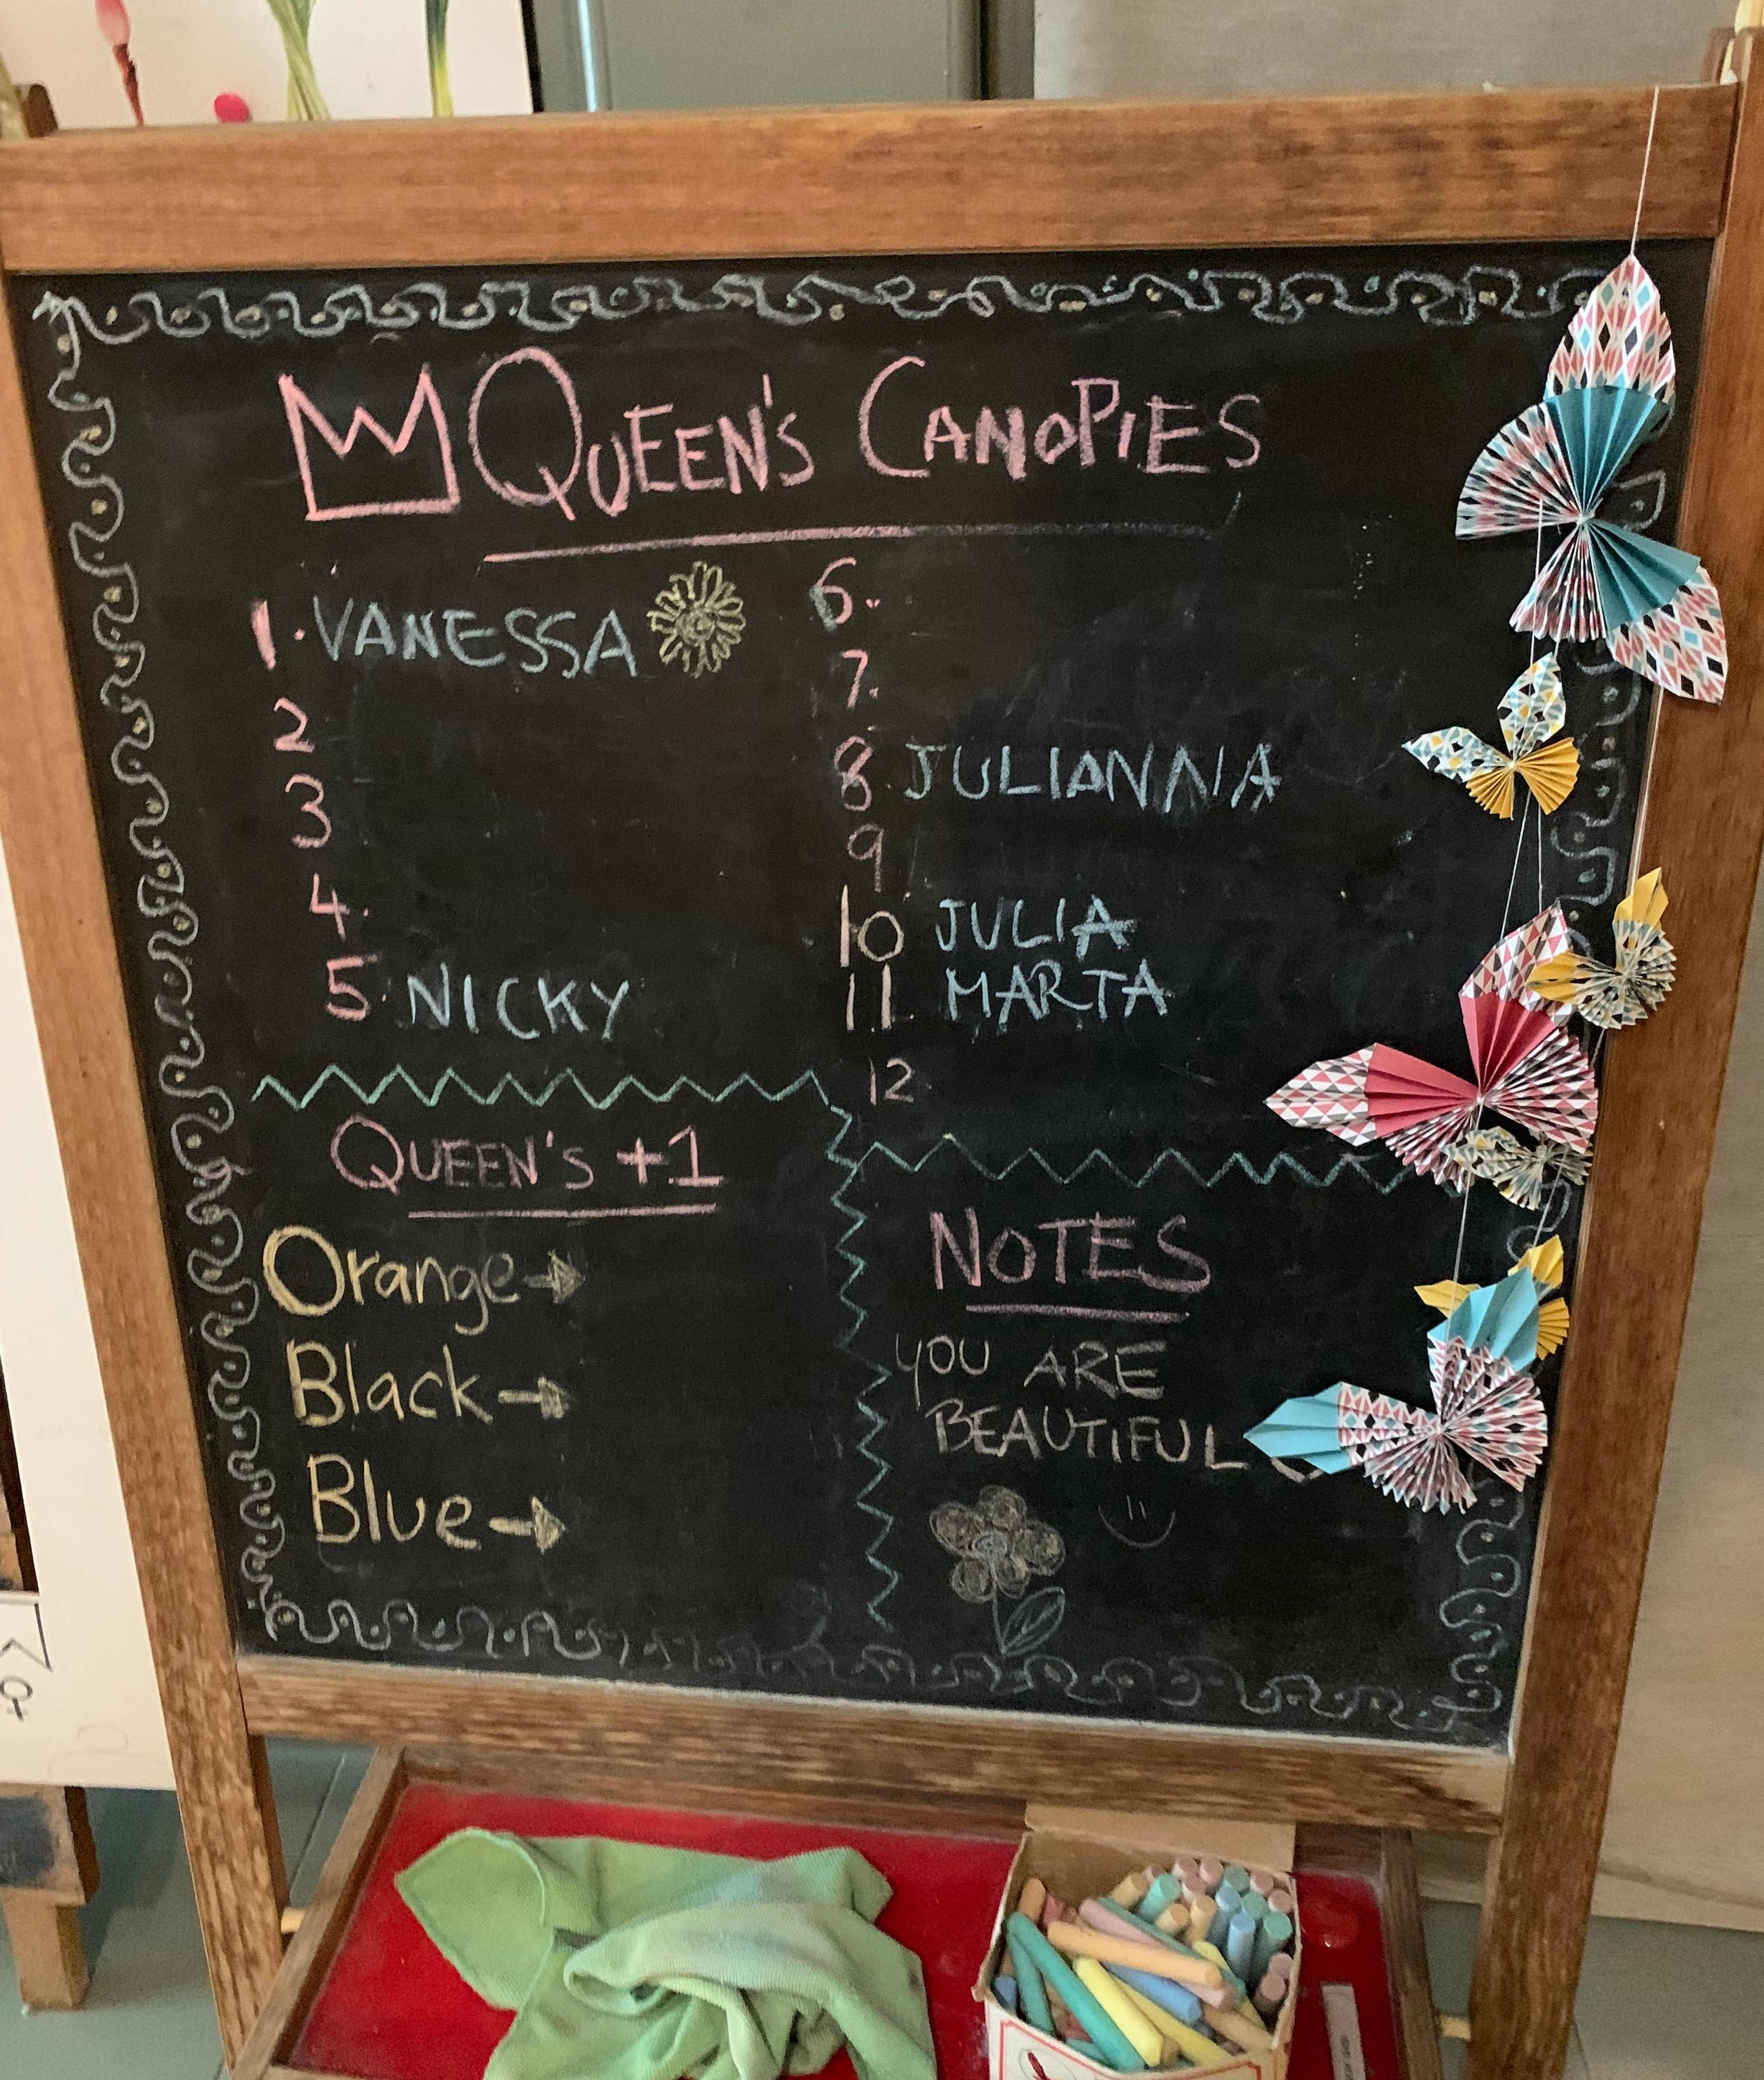 QUEEN'S CANOPIES
1. VANESSA
2
3
4.
5. NICKY
6.
7.
8. JULIANNA
9
10 JULIA
11 MARTA
12
QUEEN'S +1
Orange →
Black →
Blue →
NOTES
YOU ARE
BEAUTIFUL